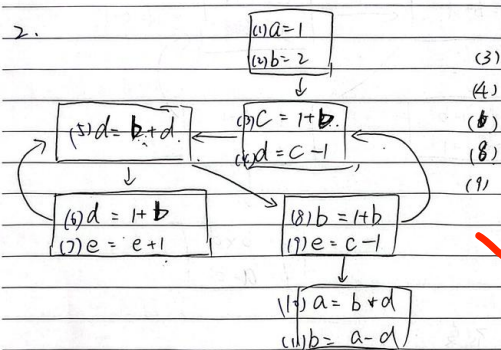 2.
(1) a = 1
(2) b = 2
(3) c = 1 + b
(4) d = c - 1
(5) d = b + d
(6) d = 1 + b
(7) e = e + 1
(8) b = 1 + b
(9) e = c - 1
(10) a = b + d
(11) b = a - d
(3)
(4)
(6)
(8)
(9)